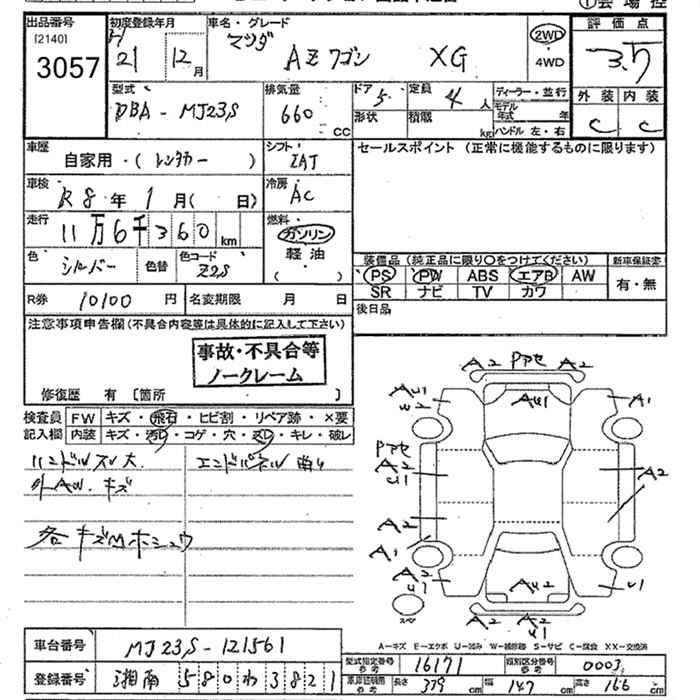 出品番号
[2140]
3057
初度登録年月
21 12月
車名・グレード
マツダ AZワゴン XG
2WD
4WD
評価点
3.5
型式
DBA - MJ23S
排気量
660 cc
ドア 5
形状
定員 4 人
積載 kg
ディーラー・並行
モデル年式 年
ハンドル 左・右
外装 内装
C C
車歴
自家用・(レンタカー )
シフト
IAT
セールスポイント (正常に機能するものに限ります)
車検
R8年1月( 日)
冷房
AC
走行
11万6千360km
燃料
ガソリン
軽油
( )
色
シルバー
色替
色コード
Z2S
装備品 (純正品に限り○をつけてください)
新車保証書
PS PW ABS エアB AW
有・無
SR ナビ TV カワ
R券 10100 円
名変期限 月 日
後日品
注意事項申告欄(不具合内容等は具体的に記入して下さい)
事故・不具合等
ノークレーム
修復歴 有 [箇所 ]
検査員
記入欄
FW キズ・飛石・ヒビ割・リペア跡・×要
内装 キズ・汚レ・コゲ・穴・スレ・キレ・破レ
ハンドルスレ大 エンドパネル曲り
外AW・キズ
各キズMホシュウ
A2 ﾀﾃｾ A2
AU1
W2
AU1
A1
A2
U1
A2
A2
A1
A2
U1
AU2
U1
A2 A2
U1
A-キズ E-エクボ U-凹み W-補修跡 S-サビ C-腐食 XX-交換済
車台番号
MJ23S-121561
型式指定番号 参考 16171
類別区分番号 参考 0003
登録番号
湘南 580 わ 3821
車庫証明用 参考 長さ 339 cm 幅 147 cm 高さ 166 cm